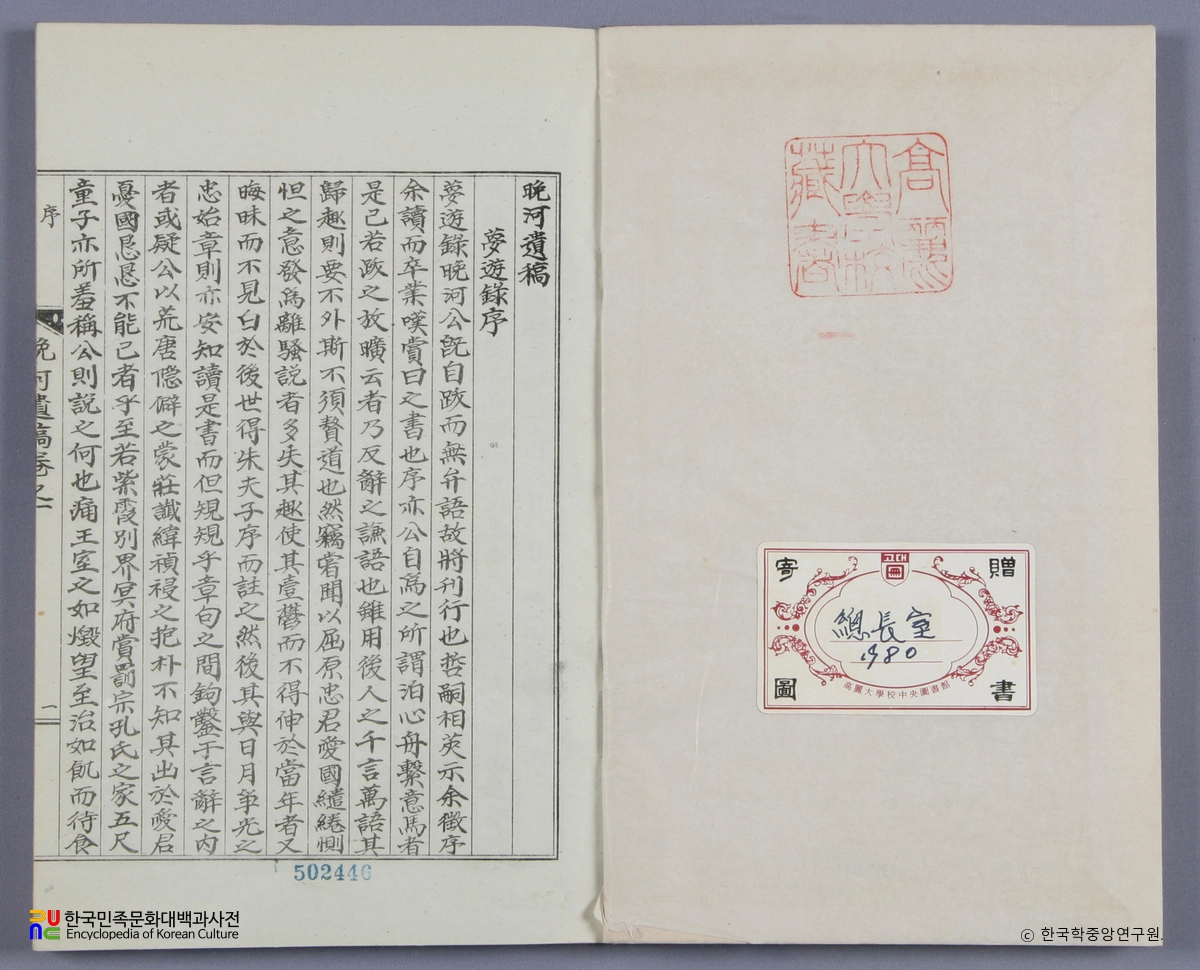 高麗
大學校
藏書
寄贈
고대
總長室
1980
高麗大學校中央圖書館
圖書
晩河遺稿
夢遊錄序
夢遊錄晩河公旣自跋而無弁語故將刊行也哲嗣相英示余徵序
余讀而卒業嘆賞曰之書也序亦公自爲之所謂泊心舟繫意馬者
是已若跋之放曠云者乃反辭之謙語也雖用後人之千言萬語其
歸趣則要不外斯不須贅道也然竊嘗聞以屈原忠君愛國繾綣惻
怛之意發爲離騷說者多失其趣使其壹鬱而不得伸於當年者又
晦昧而不見白於後世得朱夫子序而註之然後其與日月爭光之
忠始章則亦安知讀是書而但規規乎章句之間鉤鑿于言辭之內
者或疑公以荒唐隱僻之蒙莊讖緯禎祲之抱朴不知其出於愛君
憂國忌忌不能已者乎至若紫霞別界冥府賞罰宗孔氏之家五尺
童子亦所羞稱公則說之何也痛王室之如燬望至治如飢而待食
序
晩河遺稿卷之一
一
502446
한국민족문화대백과사전
Encyclopedia of Korean Culture
ⓒ 한국학중앙연구원.